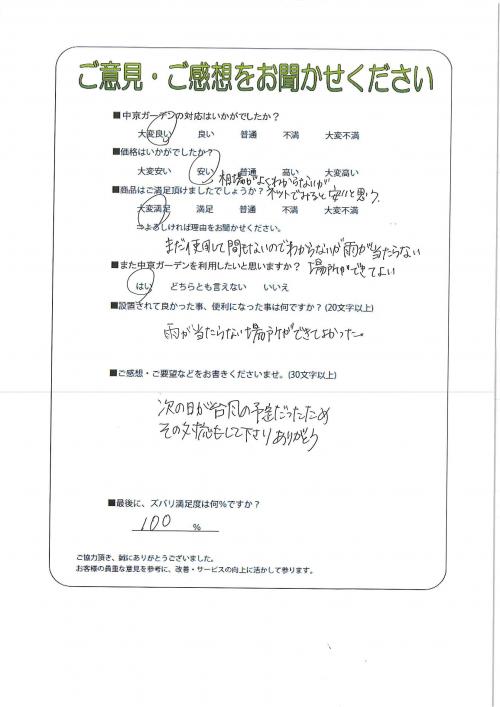 ご意見・ご感想をお聞かせください
■中京ガーデンの対応はいかがでしたか？
大変良い 良い 普通 不満 大変不満
■価格はいかがでしたか？
大変安い 安い 普通 高い 大変高い
相場がよくわからないが
ネットでみると安いと思う。
■商品はご満足頂けましたでしょうか？
大変満足 満足 普通 不満 大変不満
⇒よろしければ理由をお聞かせください。
まだ使用して間もないのでわからないが雨が当たらない
場所ができてよい
■また中京ガーデンを利用したいと思いますか？
はい どちらとも言えない いいえ
■設置されて良かった事、便利になった事は何ですか？(20文字以上)
雨が当たらない場所ができてよかった。
■ご感想・ご要望などをお書きくださいませ。(30文字以上)
次の日が台風の予定だったため
その対応もして下さりありがとう
■最後に、ズバリ満足度は何％ですか？
100 %
ご協力頂き、誠にありがとうございました。
お客様の貴重な意見を参考に、改善・サービスの向上に活かして参ります。